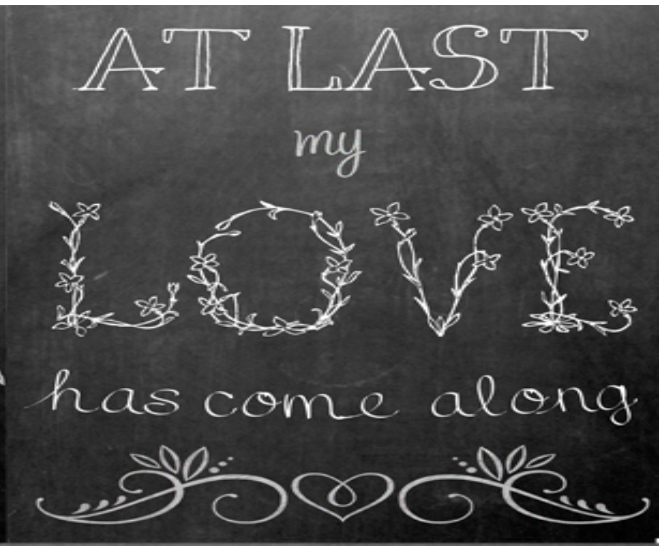 AT LAST
my
LOVE
has come along